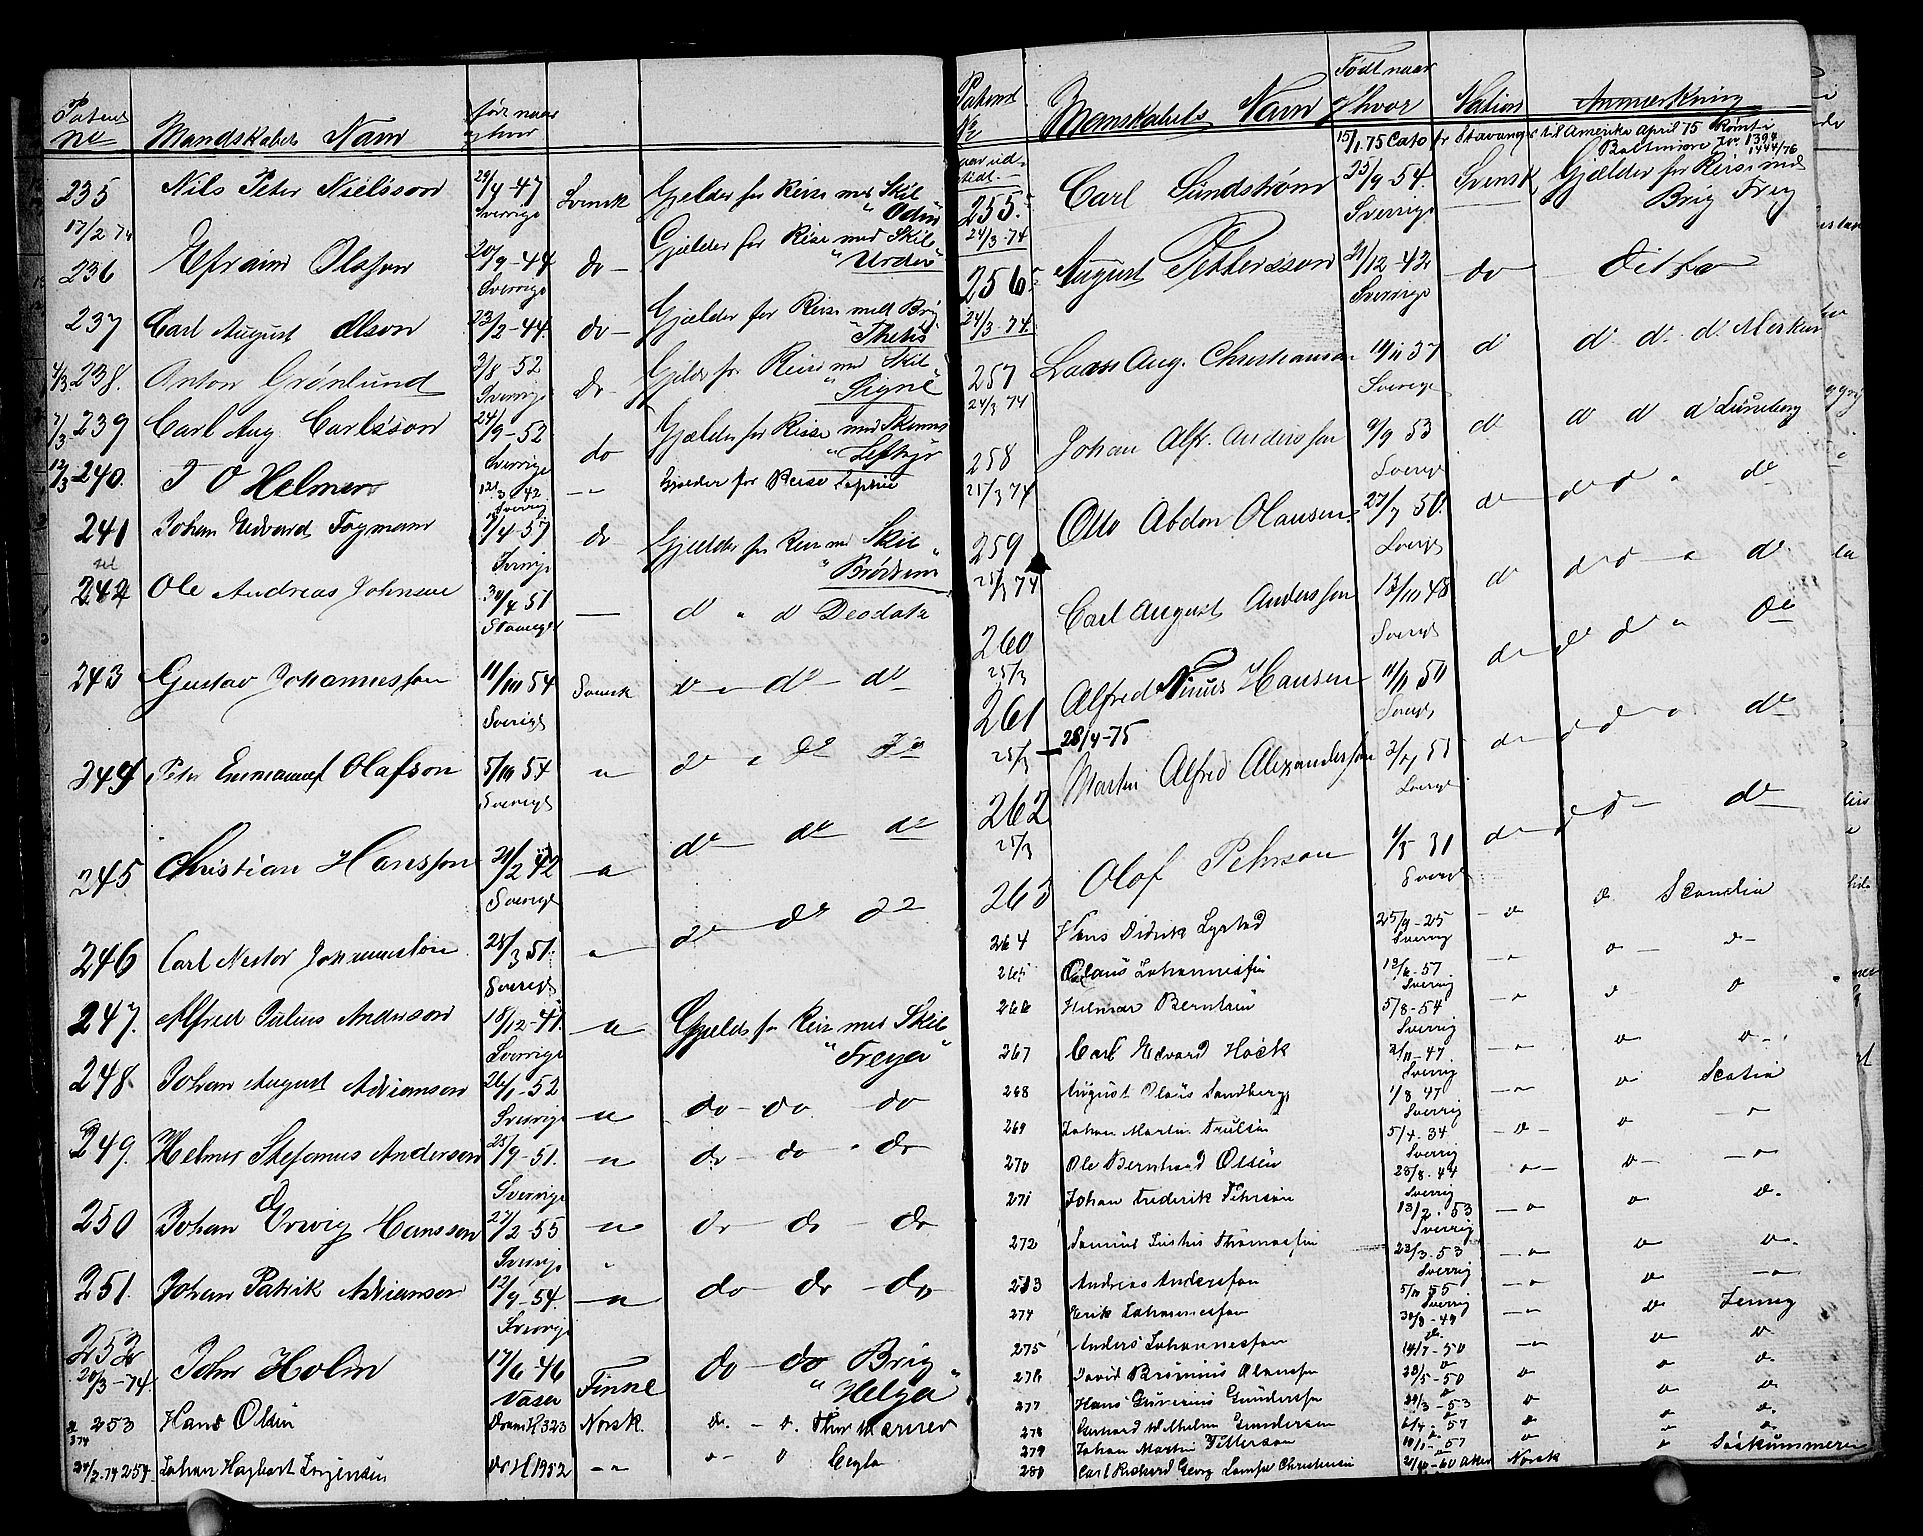 Patent
No
Mandskabets Navn
født naar
og hvor
235 Nils Peter Nielsson 29/4-47 Svensk Gjelder for Reise med Skib
Sverrige "Odin"
17/2 74
236 Efraim Olsson 20/9-44 do - Gjælder for Reise med Skib
Sverrige "Urder"
237 Carl August Olson 23/2-44 do - Gjælder for Reise med Brig
"Thetis"
4/3 238. Anton Grönlund 3/8-52 do Gjelder for Reise med Skib
Sverrige "Signe"
7/3 239 Carl Aug Carlsson 24/9-52 do Gjælder for Reise med
Sverrige
12/3 240. J O Helmers 12/3 42 - " Gjælder for Reise Sophie
Sverrig
241 Johan Edvard Fogmann 1/4-57 do Gjælder for Reise med Skib
Sverrige "Brödrene"
242 Ole Andreas Johnsen 30/4 51 — d " d Deodata
243 Gustav Johannesson 11/10 54 Svensk d - d - do
Sverige
244 Peter Emmanuel Olafson 5/10 54 " do " do do
Sverige
245 Christian Hansson 21/2 42 - " do - do do
Sverige
246 Carl Nestor Johannesson 25/3 51. " do - do do
Sverige
247. Alfred Julius Anderson 18/12-41. " Gjelder for Reise med Skib
Sverrige "Freya"
248. Johan August Adrianson 26/1-52 " do - do do
Sverrige
249. Helmer Stefanus Anderson 25/9-51. " do - do - do
Sverrige
250 Johan Edvig Hansson 27/2-55 " do - do - do
Sverrige
251. Johan Patrik Adrianson 12/9-54. - " do - do - do
Sverrige
252 John Holm 17/6-46 Finne do - do Brig
20/3-74. Vasa "Helga"
253 Hans Olsen Dram. H 323 Norsk. do. - d. Thor
24/2-74 254. Johan Hagbart Jörgensen do H 1952 - " " - d
Patent
No
Mandskabets Navn
Født naar
& hvor Nation Anmærkning
15/1 75 Cato fr Stavanger til Amerika April 75 Römt i
Baltimore Jvr. 1394
1444/76
255. Carl Sundström 25/9-54. Svensk Gjælder for Reise med
24/3-74 Sverrige Brig Frey
256 August Pettersson 21/12-42 do ditto
24/3-74. Sverrige
257 Laars Aug. Christianson 19/11 37 d d d. d. Merkur
24/3 74 Sverige
258 Johan Alfr. Andersson 9/9 53 do d d d Lüneborg
25/3 74 Sverige
259 Otto Abdon Olausen. 27/7 50. d - do d " do
25/3 74 Sverige
260 Carl August Andersson 13/10 48 d do d - " do
25/3 Sverige
261 Alfred Ninus Hansen 11/11 50 d - do d " do
25/3 28/4-75 Sverige
262 Martin Alfred Alexandersson 2/4 51 d - do d " do
25/3 Sverige
263 Olof Pehrson 1/5 31 d - do d - do
Sverige
264 Hans Didrik Lysted 25/9-25 - d d Scandia
Sverrig
265 Olaus Johannessen 12/6-57 - " " - d -
Sverrig
266 Helmar Berntsen 5/8-54 - " d - d
Sverrig
267 Carl Edvard Höck 2/11-47 - " - " d -
Sverrig
268 August Olaus Sandberg 1/8 47 - " - d Scotia
Sverrig
269 Johan Martin Trulsen 5/4-34 - d - d - "
Sverrig
270 Ole Bernhard Olsen 25/8-44 - " - d - - "
Sverrig
271 Johan Frederik Pehrson 13/2-53 - " " d.
Sverrig
272 Samuel Justus Thomassen 22/3-53 - " d d.
Sverrig
273 Andreas Andersson 5/11 55 - " d - "
Sverrig
274 Erik Johannesson 30/8-49 - " d. Jenny
do.
275 Anders Johannesson 14/7-50 - " d d
276 David Olausson 28/5-50 d d d.
277 Hans Gundersen 20/3-53 d d d
278 Gerhard Wilhelm Gundersen 6/4-57 d d d.
279 Johan Martin Pettersen 10/1-57 d d d.
280 Carl Rickard Georg Christensen 21/10-60 Norsk d